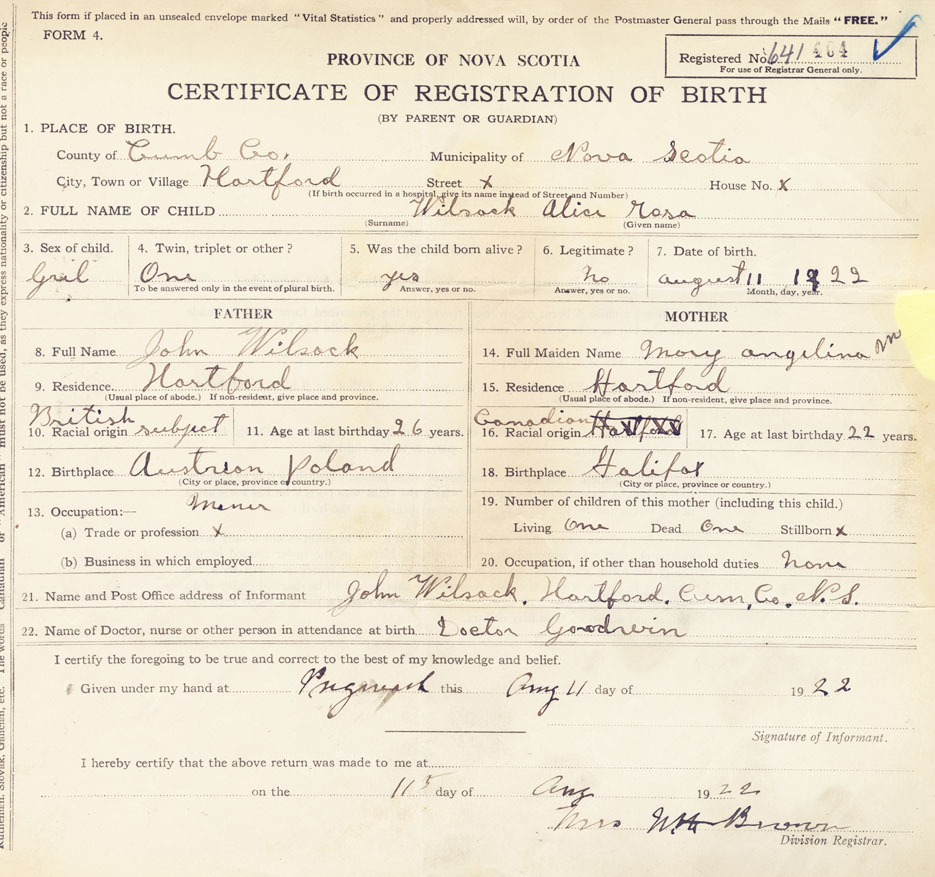 This form if placed in an unsealed envelope marked "Vital Statistics" and properly addressed will, by order of the Postmaster General pass through the Mails "FREE."
FORM 4.
PROVINCE OF NOVA SCOTIA
Registered No. 641 464
For use of Registrar General only.
CERTIFICATE OF REGISTRATION OF BIRTH
(BY PARENT OR GUARDIAN)
1. PLACE OF BIRTH.
County of Cumb Co, Municipality of Nova Scotia
City, Town or Village Hartford Street x House No. x
(If birth occurred in a hospital, give its name instead of Street and Number)
2. FULL NAME OF CHILD Wilsack Alice Rosa
(Surname) (Given name)
3. Sex of child. 4. Twin, triplet or other? 5. Was the child born alive? 6. Legitimate? 7. Date of birth.
Gril One yes no august 11 1922
To be answered only in the event of plural birth. Answer, yes or no. Answer, yes or no. Month, day, year.
FATHER MOTHER
8. Full Name John Wilsack
14. Full Maiden Name Mary angelina
9. Residence. Hartford
15. Residence Hartford
(Usual place of abode.) If non-resident, give place and province.
(Usual place of abode.) If non-resident, give place and province.
British
10. Racial origin subject 11. Age at last birthday 26 years.
Canadian
16. Racial origin Hartford 17. Age at last birthday 22 years.
12. Birthplace Austrian Poland
(City or place, province or country.)
18. Birthplace Halifax
(City or place, province or country.)
13. Occupation:— Miner
(a) Trade or profession x
(b) Business in which employed
19. Number of children of this mother (including this child.)
Living One Dead One Stillborn x
20. Occupation, if other than household duties None
21. Name and Post Office address of Informant John Wilsack, Hartford, Cum, Co, N.S.
22. Name of Doctor, nurse or other person in attendance at birth Doctor Goodwin
I certify the foregoing to be true and correct to the best of my knowledge and belief.
Given under my hand at Pugwash this Aug 11 day of 1922
Signature of Informant.
I hereby certify that the above return was made to me at
on the 11 day of Aug 1922
Mrs Brown
Division Registrar.